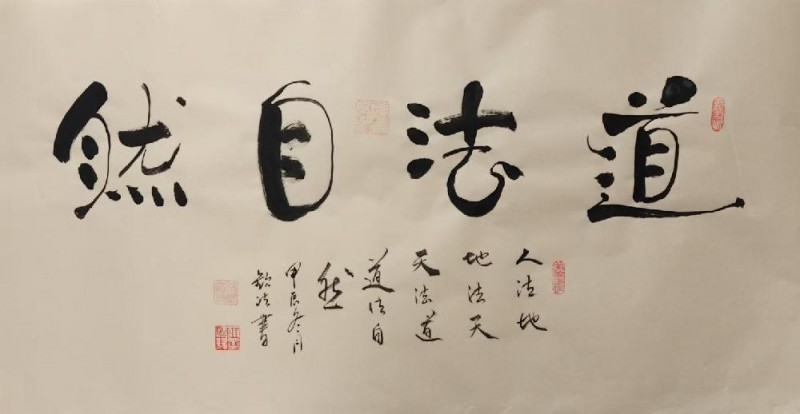 道法自然
人法地
地法天
天法道
道法自
然
甲辰冬月
書